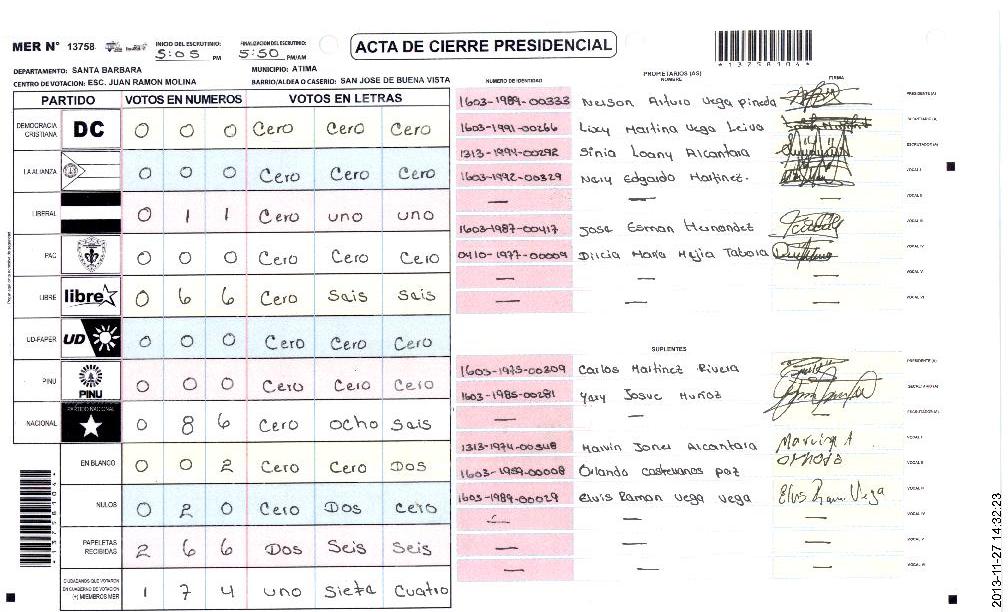 MER N° 13758
INICIO DEL ESCRUTINIO: 5:05 PM
FINALIZACION DEL ESCRUTINIO: 5:50 PM/AM
ACTA DE CIERRE PRESIDENCIAL
*13758104*
DEPARTAMENTO: SANTA BARBARA
MUNICIPIO: ATIMA
CENTRO DE VOTACION: ESC. JUAN RAMON MOLINA
BARRIO/ALDEA O CASERIO: SAN JOSE DE BUENA VISTA
PARTIDO VOTOS EN NUMEROS VOTOS EN LETRAS
DEMOCRACIA CRISTIANA DC 0 0 0 Cero Cero Cero
LA ALIANZA 0 0 0 Cero Cero Cero
LIBERAL 0 1 1 Cero uno uno
PAC 0 0 0 Cero Cero Cero
LIBRE libre 0 6 6 Cero Seis Seis
UD-FAPER UD 0 0 0 Cero Cero Cero
PINU PINU 0 0 0 Cero Cero Cero
NACIONAL PARTIDO NACIONAL 0 8 6 Cero ocho Seis
EN BLANCO 0 0 2 Cero Cero Dos
NULOS 0 2 0 Cero Dos Cero
PAPELETAS RECIBIDAS 2 6 6 Dos Seis Seis
CIUDADANOS QUE VOTARON EN CUADERNO DE VOTACION (+) MIEMBROS MER 1 7 4 uno Siete Cuatro
NUMERO DE IDENTIDAD
PROPIETARIOS (AS)
NOMBRE
FIRMA
1603-1989-00333 Nelson Arturo Vega pineda PRESIDENTE (A)
1603-1991-00266 Lixy Martina Vega Leiva SECRETARIO (A)
1313-1994-00292 Sinia Loany Alcantara ESCRUTADOR (A)
1603-1992-00329 Nery Edgardo Martinez. VOCAL I
— — VOCAL II
1603-1987-00417 Jose Esman Hernandez VOCAL III
0410-1977-00009 Dilcia Maria Mejia Tabora VOCAL IV
— — — VOCAL V
— — — VOCAL VI
SUPLENTES
1603-1973-00309 Carlos Martinez Rivera PRESIDENTE (A)
1603-1985-00281 Yary Josue Muñoz SECRETARIO (A)
— — — ESCRUTADOR (A)
1313-1974-00348 Marvin Jones Alcantara Marvin A VOCAL I
1603-1959-00008 Orlando castellanos paz VOCAL II
1603-1989-00029 Elvis Ramon Vega Vega Elvis Ramon Vega VOCAL III
— — VOCAL IV
— — — VOCAL V
— — — VOCAL VI
2013-11-27 14:32:23